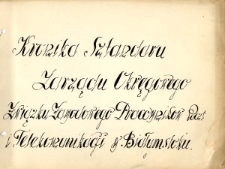 Kronika Sztandaru
Zarządu Okręgowego
Związku Zawodowego Pracowników Poczt
i Telekomunikacji w Białymstoku